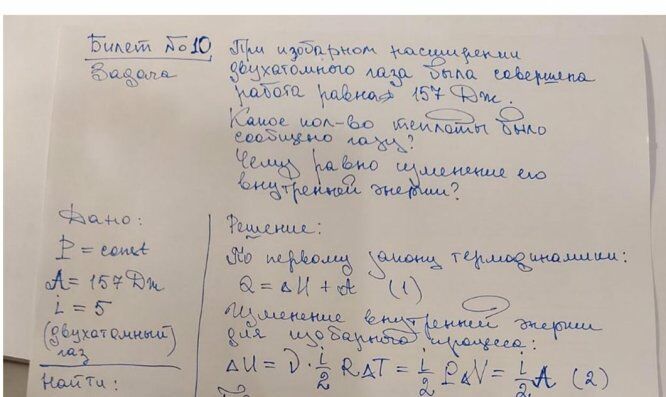 Билет № 10
Задача
При изобарном расширении
двухатомного газа была совершена
работа равная 157 Дж.
Какое кол-во теплоты было
сообщено газу?
Чему равно изменение его
внутренней энергии?
Дано:
P = const
A = 157 Дж
i = 5
(двухатомный)
газ
Найти:
Решение:
По первому закону термодинамики:
Q = ΔU + A (1)
Изменение внутренней энергии
для изобарного процесса:
ΔU = ν · i/2 RΔT = i/2 PΔV = i/2 A (2)